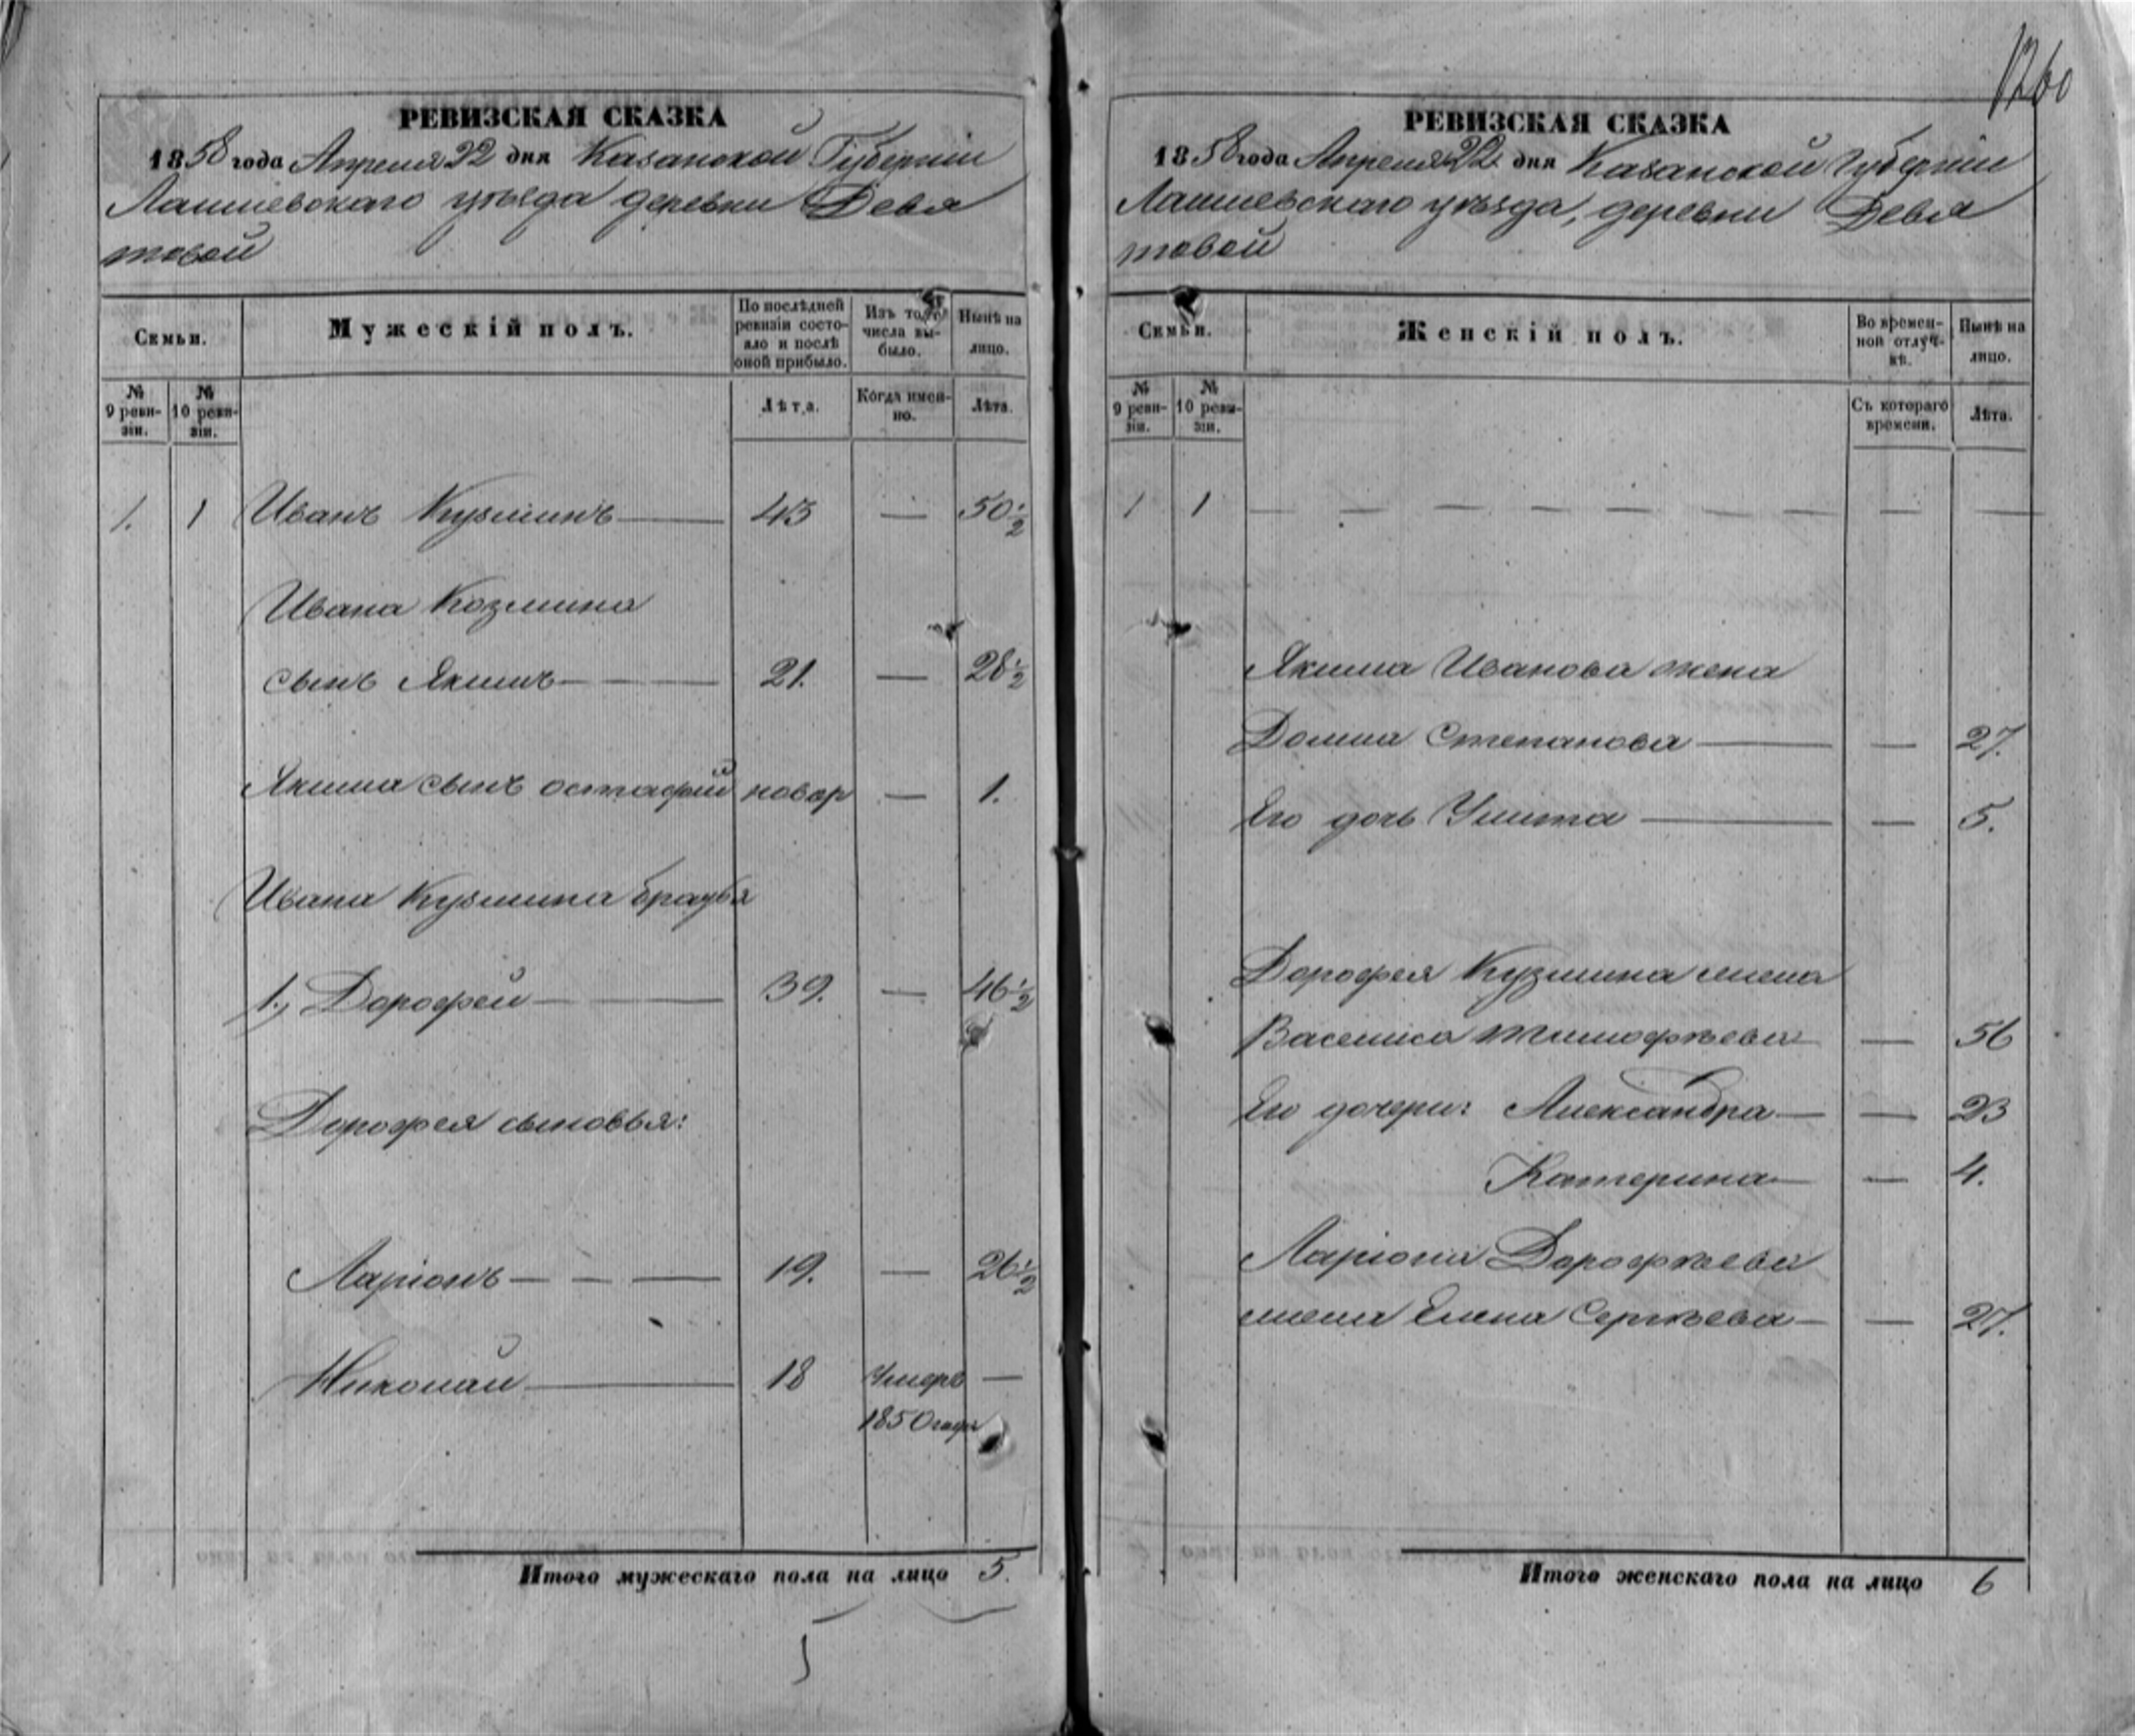 1260
РЕВИЗСКАЯ СКАЗКА
1858 года Апреля 22 дня Казанской Губерніи
Лаишевскаго уѣзда деревни Девя
товой
Семьи.
Мужескій полъ.
По послѣдней ревизіи состояло и послѣ оной прибыло.
Изъ того числа выбыло.
Нынѣ на лицо.
№ 9 ревизіи.
№ 10 ревизіи.
Лѣта.
Когда именно.
Лѣта.
1. 1 Иванъ Кузминъ — 43 — 50 1/2
Ивана Козмина
сынъ Якимъ — 21. — 28 1/2
Якима сынъ остафій новор — 1.
Ивана Кузмина братья
1., Дорофей — 39. — 46 1/2
Дорофея сыновья:
Ларіонъ — — — 19. — 26 1/2
Николай — 18 Умеръ —
1850 года
Итого мужескаго пола на лицо 5.
5
РЕВИЗСКАЯ СКАЗКА
1858 года Апреля 22 дня Казанской Губерніи
Лаишевскаго уѣзда, деревни Девя
товой
Семьи.
Женскій полъ.
Во временной отлучкѣ.
Нынѣ на лицо.
№ 9 ревизіи.
№ 10 ревизіи.
Съ котораго времени.
Лѣта.
1 1 — — — — — — — — — —
Якима Иванова жена
Домна Степанова — — 27.
Его дочь Улита — — 5.
Дорофея Кузмина жена
Васелиса Тимофѣева — — 56
Его дочери: Александра — — 23
Катерина — — 4.
Ларіона Дорофѣева
жена Елена Сергѣева — — 27.
Итого женскаго пола на лицо 6